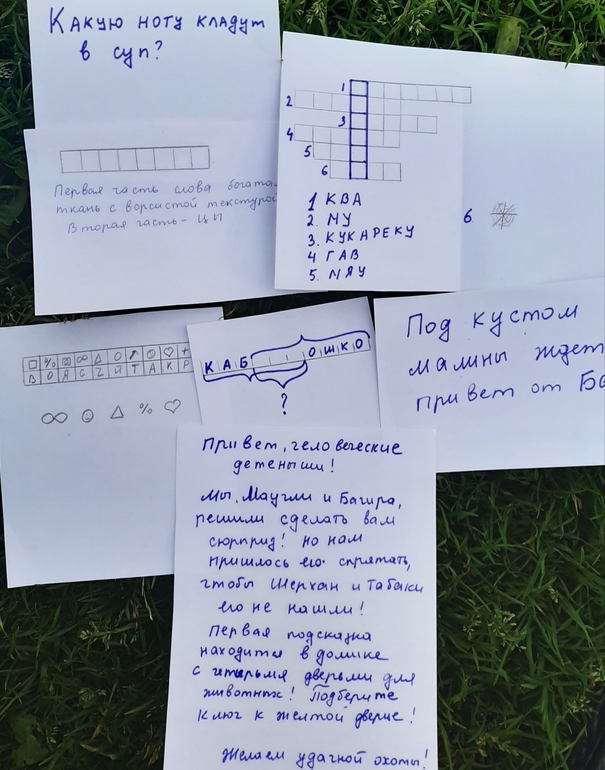 Какую ноту кладут
в суп?
1
2
3
4
5
6
1 КВА
2. МУ
3. КУКАРЕКУ
4 ГАВ
5. МЯУ
6
Первая часть слова богата
ткань с ворсистой текстурой
Вторая часть - ЦИ
В О Я С Ч Й Т А К Р
КАБ ОШКО
?
Под кустом
малины ждет
привет от Ба
Привет, человеческие
детеныши!
Мы, Маугли и Багира,
решили сделать вам
сюрприз! Но нам
пришлось его спрятать,
чтобы Шерхан и Табаки
его не нашли!
Первая подсказка
находится в домике
с четырьмя дверьми для
животных! Подберите
ключ к желтой дверце!
Желаем удачной охоты!